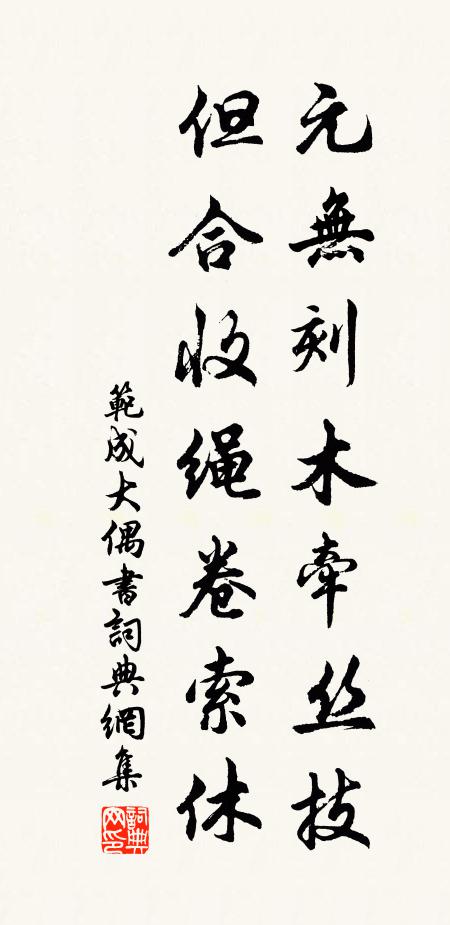 元無刻木牽丝技
但合收绳卷索休
範成大偶書詞典網集
詞典
网印